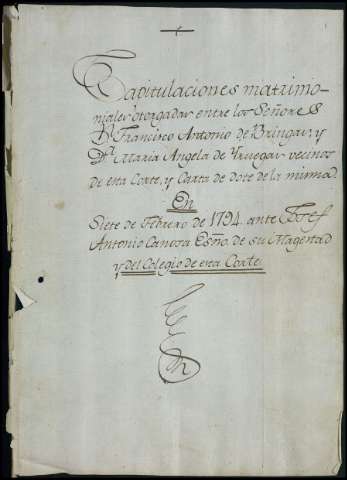 Capitulaciones matrimo-
niales otorgadas entre los Señores
Dn Francisco Antonio de Bringas, y
Dª Maria Angela de Yruegas vecinos
de esta Corte, y Carta de dote de la misma
En
Siete de Febrero de 1794 ante Josef
Antonio Canosa Esno. de su Magestad
y del Colegio de esta Corte